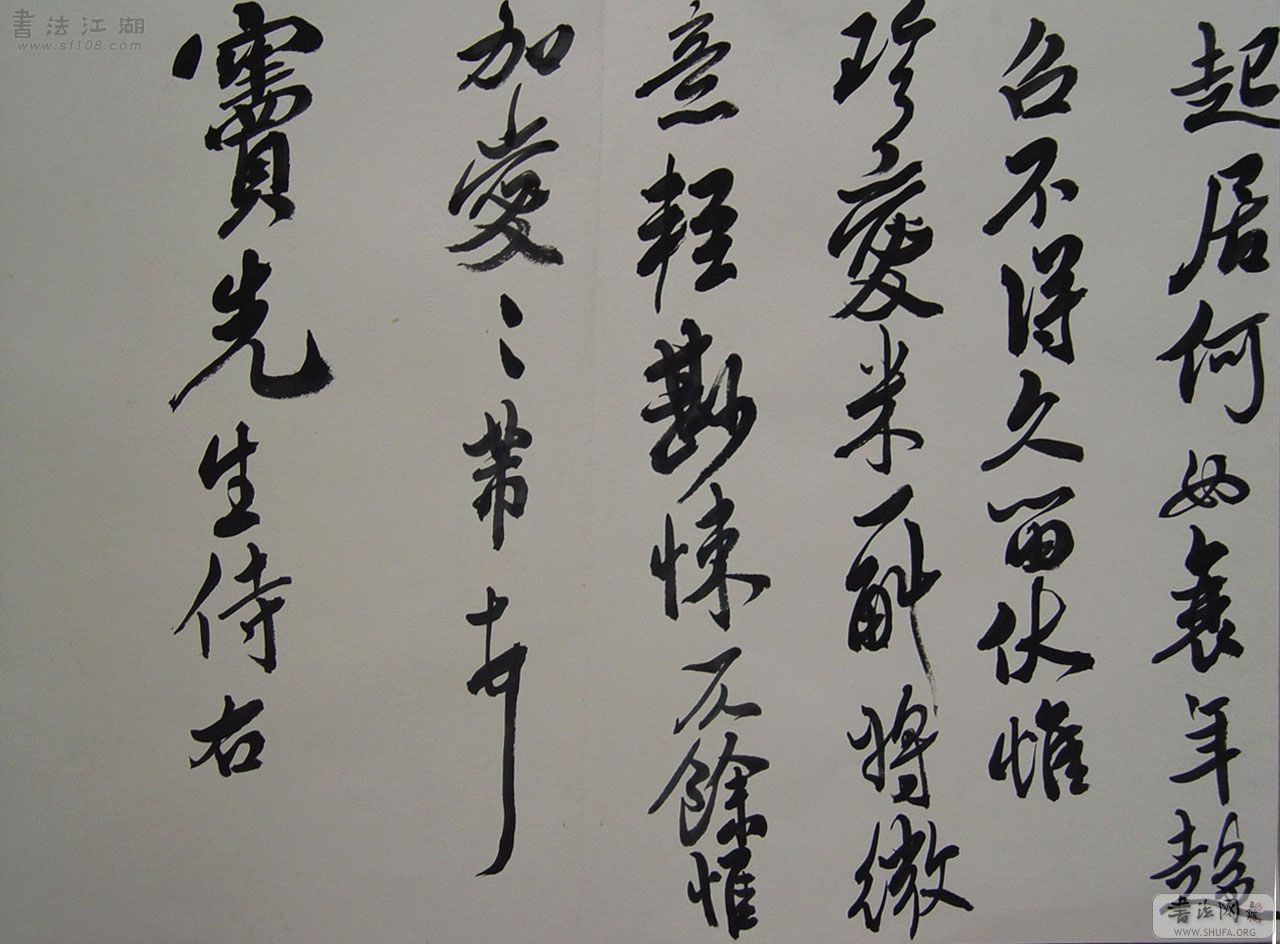 書法江湖
www.sf108.com
起居何如衰年趨
召不得久留伏惟
珍愛米一斛將微
意輕尠悚仄餘惟
加愛〻芾
竇先生侍右
書法网
WWW.SHUFA.ORG